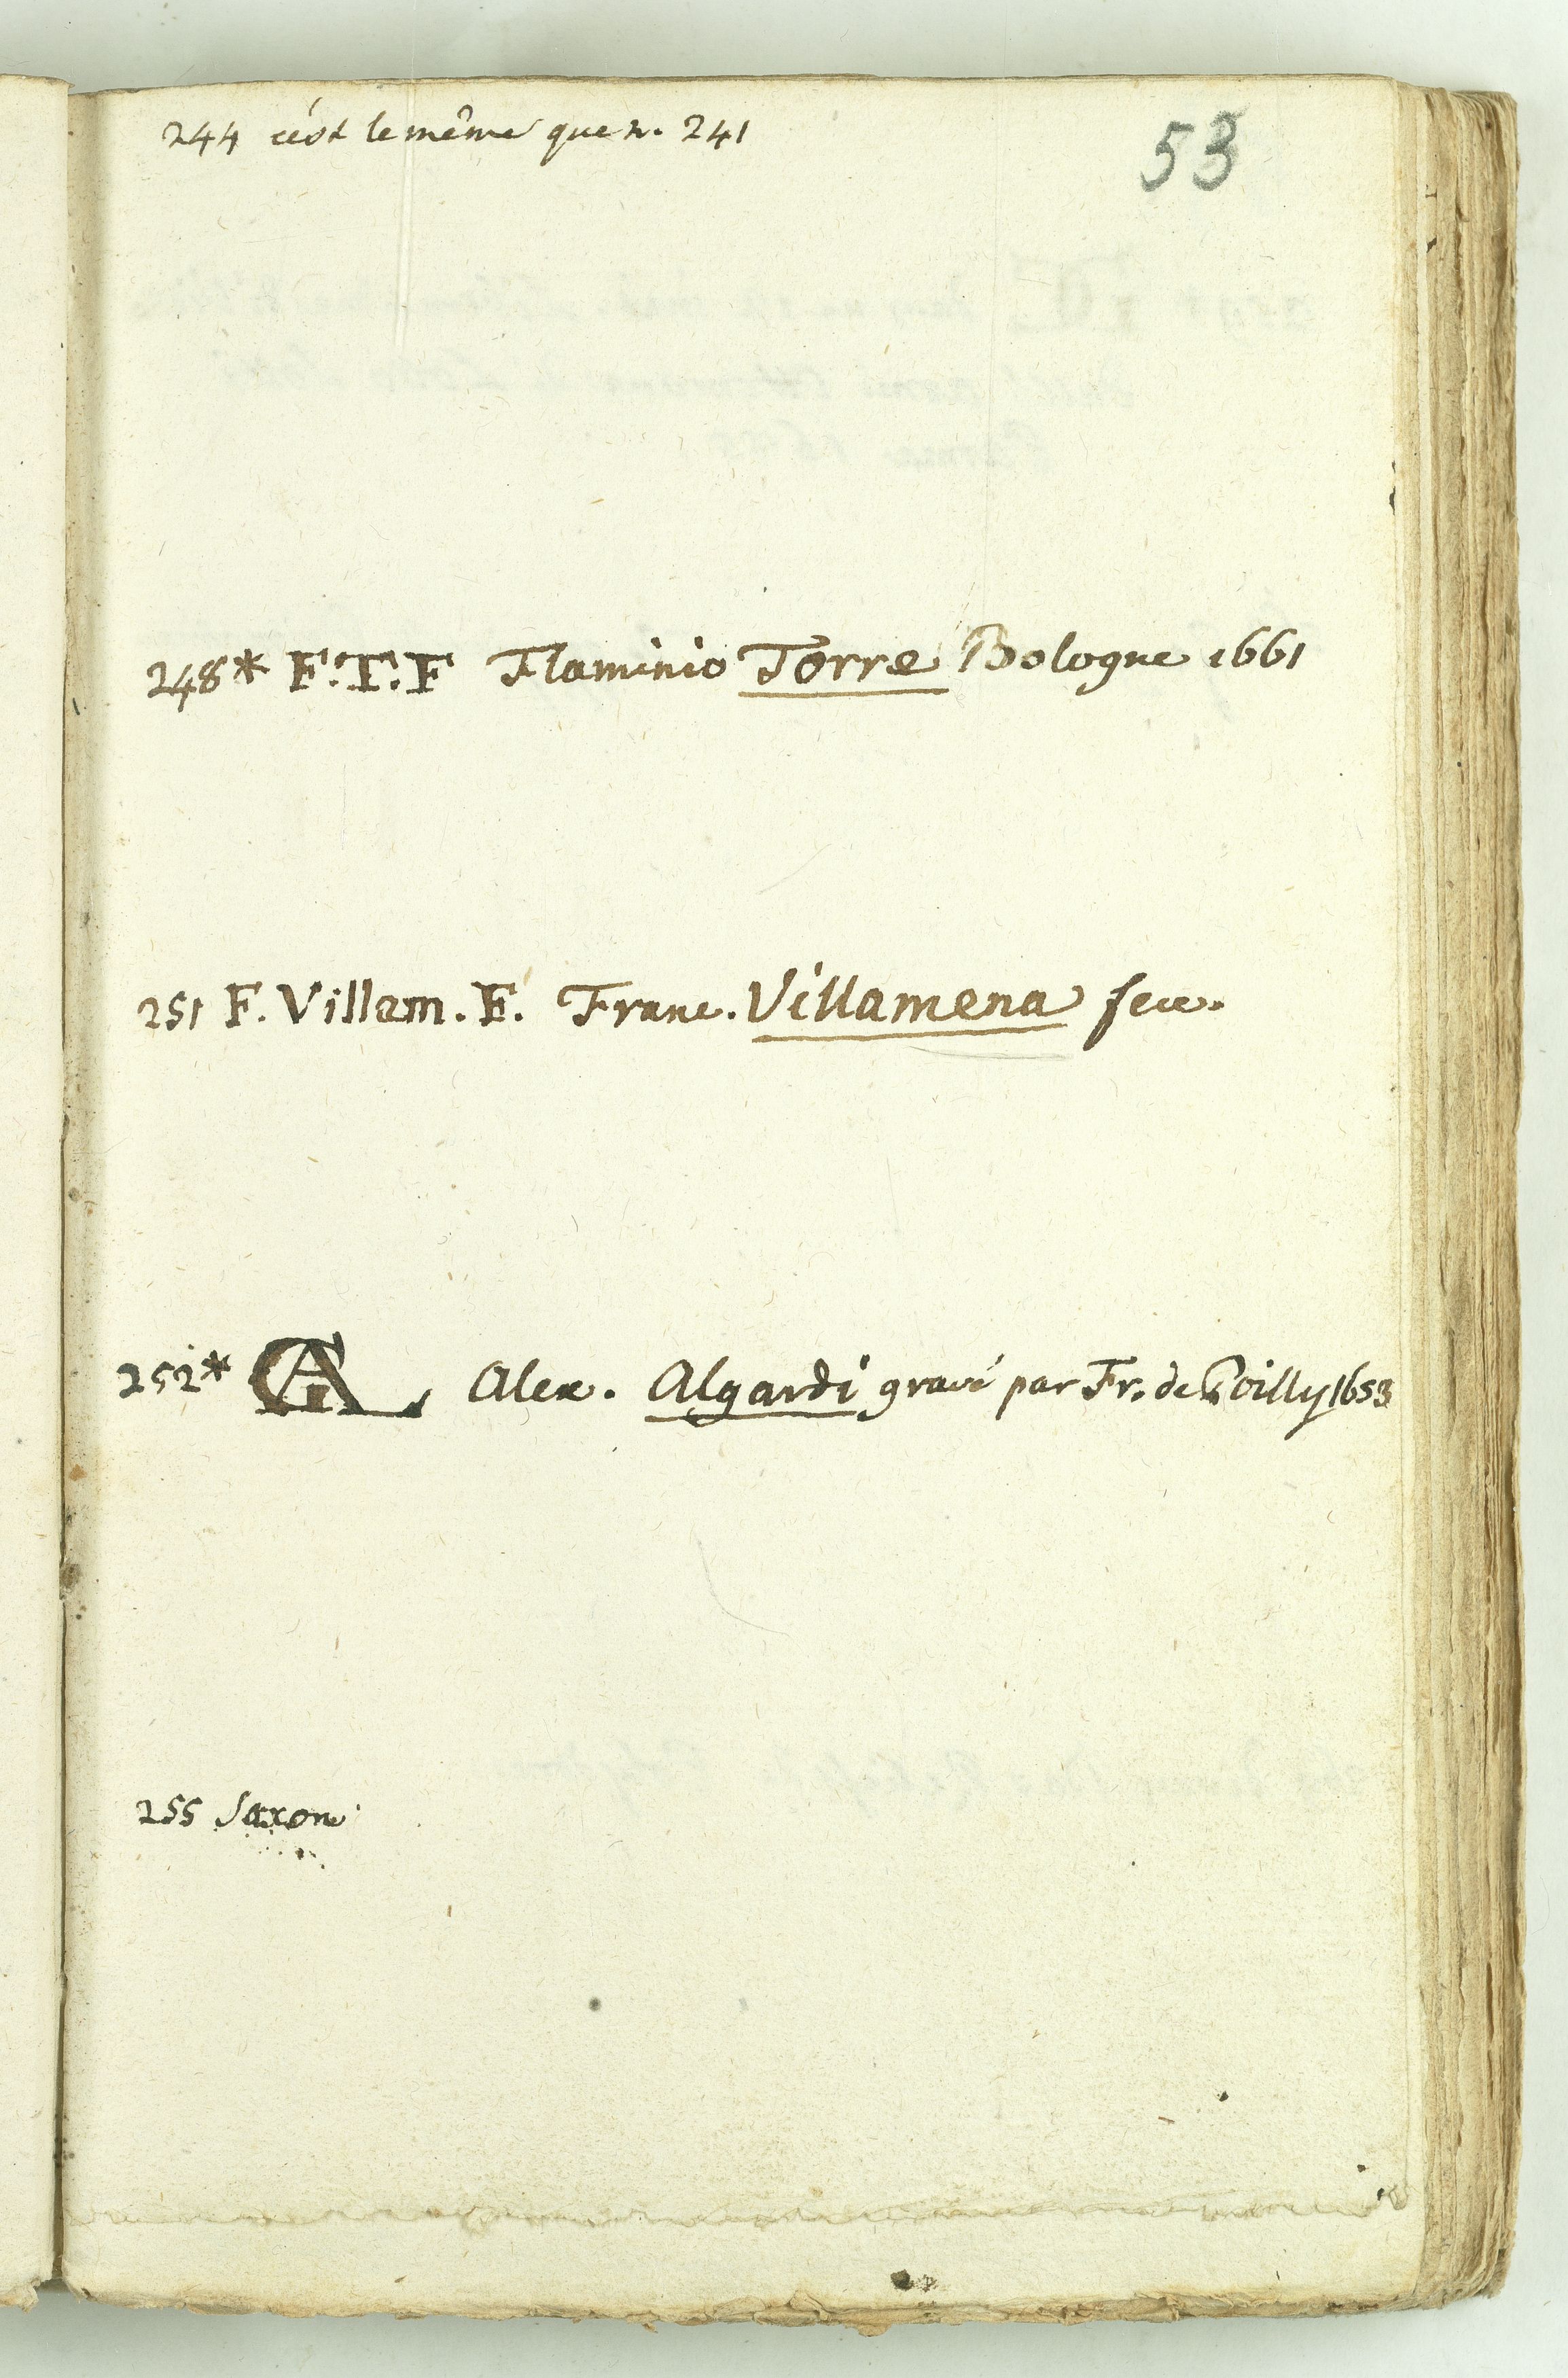 53
244 c'ést le même que n. 241
248* F.T.F Flaminio Torre Bologne 1661
251 F. Villam. F. Franc. Villamena fec.
252* GA Alex. Algardi gravé par Fr. de Poilly 1653
255 Saxon